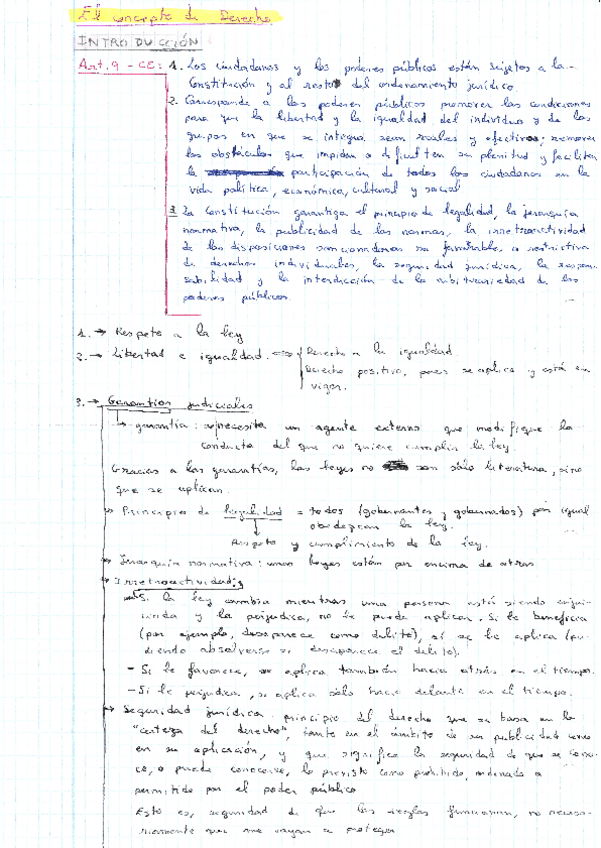 El concepto de Derecho
INTRODUCCIÓN
Art. 9 - CE: 1. Los ciudadanos y los poderes públicos están sujetos a la
Constitución y al resto del ordenamiento jurídico.
2. Corresponde a los poderes públicos promover las condiciones
para que la libertad y la igualdad del individuo y de los
grupos en que se integra sean reales y efectivas; remover
los obstáculos que impidan o dificulten su plenitud y faciliten
la participación de todos los ciudadanos en la
vida política, económica, cultural y social
3. La Constitución garantiza el principio de legalidad, la jerarquía
normativa, la publicidad de las normas, la irretroactividad
de las disposiciones sancionadoras no favorables o restrictiva
de derechos individuales, la seguridad jurídica, la respon-
sabilidad y la interdicción de la arbitrariedad de los
poderes públicos.
1. → Respeto a la ley
2. → Libertad e igualdad. ⟺ { Derecho a la igualdad
Derecho positivo, pues se aplica y está en
vigor.
3. → Garantías judiciales
↳ garantía: necesita un agente externo que modifique la
conducta del que no quiere cumplir la ley.
Gracias a las garantías, las leyes no son sólo literatura, sino
que se aplican.
→ Principio de legalidad = todos (gobernantes y gobernados) por igual
obedezcan la ley.
Respeto y cumplimiento de la ley.
→ Jerarquía normativa: unas leyes están por encima de otras
→ Irretroactividad:
- Si la ley cambia mientras una persona está siendo enjui-
ciada y la perjudica, no se puede aplicar. Si le beneficia
(por ejemplo, desaparece como delito), sí se le aplica (pu-
diendo absolverse si desaparece el delito).
- Si le favorece, se aplica también hacia atrás en el tiempo.
- Si le perjudica, se aplica sólo hacia delante en el tiempo.
→ Seguridad jurídica: principio del derecho que se basa en la
"certeza del derecho", tanto en el ámbito de su publicidad como
en su aplicación, y que significa la seguridad de que se cono-
ce, o puede conocerse, lo previsto como prohibido, ordenado o
permitido por el poder público
Esto es, seguridad de que las reglas funcionan, no necesa-
riamente que me vayan a proteger